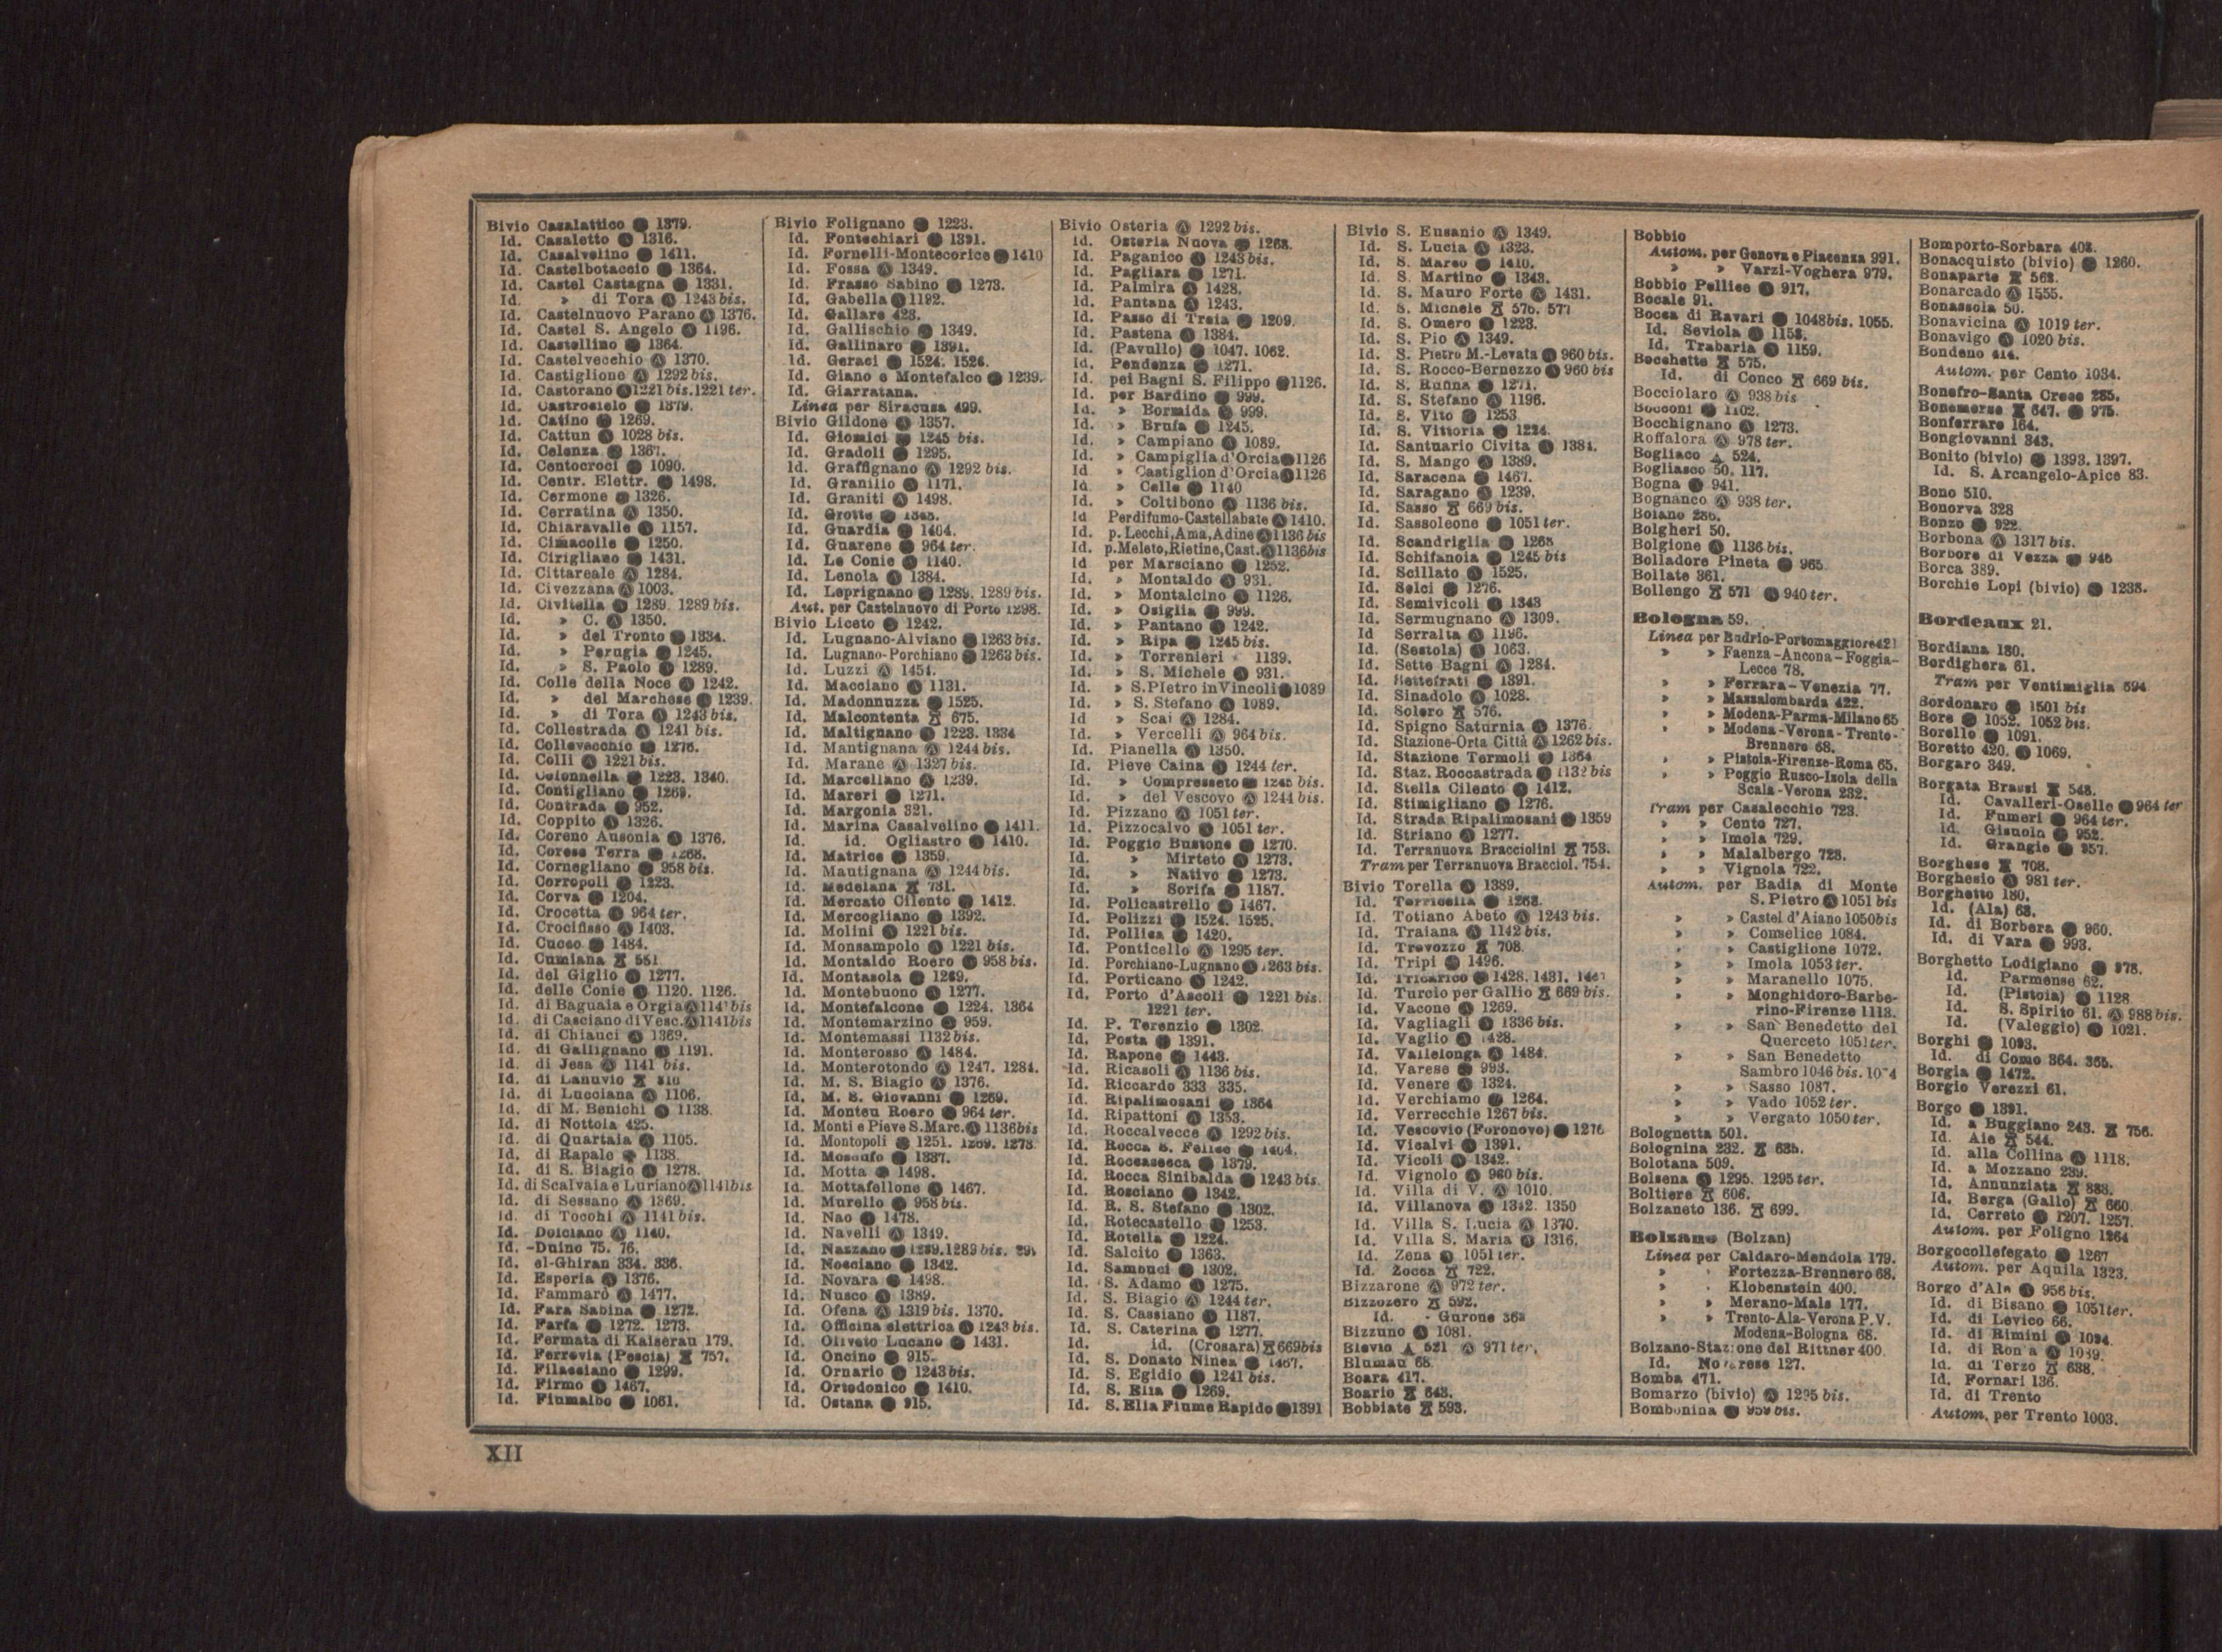 Bivio Casalattico Ⓐ 1379.
Id. Casaletto Ⓐ 1316.
Id. Casalvelino Ⓐ 1411.
Id. Castelbotaccio Ⓐ 1364.
Id. Castel Castagna Ⓐ 1331.
Id. » di Tora Ⓐ 1243 bis.
Id. Castelnuovo Parano Ⓐ 1376.
Id. Castel S. Angelo Ⓐ 1196.
Id. Castellino Ⓐ 1364.
Id. Castelvecchio Ⓐ 1370.
Id. Castiglione Ⓐ 1292 bis.
Id. Castorano Ⓐ 1221 bis. 1221 ter.
Id. Castrocielo Ⓐ 1379.
Id. Catino Ⓐ 1269.
Id. Cattun Ⓐ 1028 bis.
Id. Celenza Ⓐ 1367.
Id. Centocroci Ⓐ 1090.
Id. Centr. Elettr. Ⓐ 1498.
Id. Cermone Ⓐ 1326.
Id. Cerratina Ⓐ 1350.
Id. Chiaravalle Ⓐ 1157.
Id. Cimacolle Ⓐ 1250.
Id. Cirigliano Ⓐ 1431.
Id. Cittareale Ⓐ 1284.
Id. Civezzana Ⓐ 1003.
Id. Civitella Ⓐ 1289. 1289 bis.
Id. » C. Ⓐ 1350.
Id. » del Tronto Ⓐ 1334.
Id. » Perugia Ⓐ 1245.
Id. » S. Paolo Ⓐ 1289.
Id. Colle della Noce Ⓐ 1242.
Id. » del Marchese Ⓐ 1239.
Id. » di Tora Ⓐ 1243 bis.
Id. Collestrada Ⓐ 1241 bis.
Id. Collevecchio Ⓐ 1276.
Id. Colli Ⓐ 1221 bis.
Id. Colonnella Ⓐ 1223. 1340.
Id. Contigliano Ⓐ 1269.
Id. Contrada Ⓐ 952.
Id. Coppito Ⓐ 1326.
Id. Coreno Ausonia Ⓐ 1376.
Id. Corese Terra Ⓐ 1268.
Id. Cornegliano Ⓐ 958 bis.
Id. Corropoli Ⓐ 1223.
Id. Corva Ⓐ 1204.
Id. Crocetta Ⓐ 964 ter.
Id. Crocifisso Ⓐ 1403.
Id. Cuceo Ⓐ 1484.
Id. Cumiana 551
Id. del Giglio Ⓐ 1277.
Id. delle Conie Ⓐ 1120. 1126.
Id. di Bagnaia e Orgia Ⓐ 1141 bis
Id. di Casciano di Vesc. Ⓐ 1141 bis
Id. di Chianci Ⓐ 1369.
Id. di Gallignano Ⓐ 1191.
Id. di Jesa Ⓐ 1141 bis.
Id. di Lanuvio
Id. di Lucciana Ⓐ 1106.
Id. di M. Benichi Ⓐ 1138.
Id. di Nottola 425.
Id. di Quartaia Ⓐ 1105.
Id. di Rapale Ⓐ 1138.
Id. di S. Biagio Ⓐ 1278.
Id. di Scalvaia e Luriano Ⓐ 1141 bis
Id. di Sessano Ⓐ 1369.
Id. di Tocchi Ⓐ 1141 bis.
Id. Dolciano Ⓐ 1140.
Id. -Duino 75. 76.
Id. el-Ghiran 334. 336.
Id. Esperia Ⓐ 1376.
Id. Fammarò Ⓐ 1477.
Id. Fara Sabina Ⓐ 1272.
Id. Farfa Ⓐ 1272. 1273.
Id. Fermata di Kaiserau 179.
Id. Ferrovia (Pescia) 757.
Id. Filacciano Ⓐ 1299.
Id. Firmo Ⓐ 1467.
Id. Fiumalbo Ⓐ 1061.
Bivio Folignano Ⓐ 1223.
Id. Fontechiari Ⓐ 1391.
Id. Fornelli-Montecorice Ⓐ 1410
Id. Fossa Ⓐ 1349.
Id. Frasso Sabino Ⓐ 1273.
Id. Gabella Ⓐ 1192.
Id. Gallare 423.
Id. Gallischio Ⓐ 1349.
Id. Gallinaro Ⓐ 1391.
Id. Geraci Ⓐ 1524. 1526.
Id. Giano e Montefalco Ⓐ 1239.
Id. Giarratana.
Linea per Siracusa 499.
Bivio Gildone Ⓐ 1357.
Id. Giomici Ⓐ 1245 bis.
Id. Gradoli Ⓐ 1295.
Id. Graffignano Ⓐ 1292 bis.
Id. Granilio Ⓐ 1171.
Id. Graniti Ⓐ 1498.
Id. Grotte Ⓐ
Id. Guardia Ⓐ 1404.
Id. Guarene Ⓐ 964 ter.
Id. Le Conie Ⓐ 1140.
Id. Lenola Ⓐ 1384.
Id. Leprignano Ⓐ 1289. 1289 bis.
Aut. per Castelnuovo di Porto 1298.
Bivio Liceto Ⓐ 1242.
Id. Lugnano-Alviano Ⓐ 1263 bis.
Id. Lugnano-Porchiano Ⓐ 1263 bis.
Id. Luzzi Ⓐ 1454.
Id. Macciano Ⓐ 1131.
Id. Madonnuzza Ⓐ 1525.
Id. Malcontenta 675.
Id. Maltignano Ⓐ 1223. 1334
Id. Mantignana Ⓐ 1244 bis.
Id. Marane Ⓐ 1327 bis.
Id. Marcellano Ⓐ 1239.
Id. Mareri Ⓐ 1271.
Id. Margonia 321.
Id. Marina Casalvelino Ⓐ 1411.
Id. id. Ogliastro Ⓐ 1410.
Id. Matrice Ⓐ 1359.
Id. Mautignana Ⓐ 1244 bis.
Id. Medelana 731.
Id. Mercato Cilento Ⓐ 1412.
Id. Mercogliano Ⓐ 1392.
Id. Molini Ⓐ 1221 bis.
Id. Monsampolo Ⓐ 1221 bis.
Id. Montaldo Roero Ⓐ 958 bis.
Id. Montasola Ⓐ 1269.
Id. Montebuono Ⓐ 1277.
Id. Montefalcone Ⓐ 1224. 1364
Id. Montemarzino Ⓐ 959.
Id. Montemassi 1132 bis.
Id. Monterosso Ⓐ 1484.
Id. Monterotondo Ⓐ 1247. 1284.
Id. M. S. Biagio Ⓐ 1376.
Id. M. S. Giovanni Ⓐ 1269.
Id. Monteu Roero Ⓐ 964 ter.
Id. Monti e Pieve S. Marc. Ⓐ 1136 bis
Id. Montopoli Ⓐ 1251. 1269. 1273.
Id. Moscufo Ⓐ 1337.
Id. Motta Ⓐ 1498.
Id. Mottafellone Ⓐ 1467.
Id. Murello Ⓐ 958 bis.
Id. Nao Ⓐ 1478.
Id. Navelli Ⓐ 1349.
Id. Nazzano Ⓐ 1289. 1289 bis.
Id. Nosciano Ⓐ 1342.
Id. Novara Ⓐ 1498.
Id. Nusco Ⓐ 1389.
Id. Ofena Ⓐ 1319 bis. 1370.
Id. Officina elettrica Ⓐ 1243 bis.
Id. Oliveto Lucano Ⓐ 1431.
Id. Oncino Ⓐ 915.
Id. Ornario Ⓐ 1243 bis.
Id. Ortodonico Ⓐ 1410.
Id. Ostana Ⓐ 915.
Bivio Osteria Ⓐ 1292 bis.
Id. Osteria Nuova Ⓐ 1268.
Id. Paganico Ⓐ 1243 bis.
Id. Pagliara Ⓐ 1271.
Id. Palmira Ⓐ 1428.
Id. Pantana Ⓐ 1243.
Id. Passo di Treia Ⓐ 1209.
Id. Pastena Ⓐ 1384.
Id. (Pavullo) Ⓐ 1047. 1062.
Id. Pendenza Ⓐ 1271.
Id. pei Bagni S. Filippo Ⓐ 1126.
Id. per Bardino Ⓐ 999.
Id. » Bormida Ⓐ 999.
Id. » Brufa Ⓐ 1245.
Id. » Campiano Ⓐ 1089.
Id. » Campiglia d'Orcia Ⓐ 1126
Id » Castiglion d'Orcia Ⓐ 1126
Id » Celle Ⓐ 1140
Id. » Coltibono Ⓐ 1136 bis.
Id Perdifumo-Castellabate Ⓐ 1410.
Id. p. Lecchi, Ama, Adine Ⓐ 1136 bis
Id. p. Meleto, Rietine, Cast. Ⓐ 1136 bis
Id per Marsciano Ⓐ 1252.
Id. » Montaldo Ⓐ 931.
Id. » Montalcino Ⓐ 1126.
Id. » Osiglia Ⓐ 999.
Id. » Pantano Ⓐ 1242.
Id. » Ripa Ⓐ 1245 bis.
Id. » Torrenieri 1139.
Id. » S. Michele Ⓐ 931.
Id. » S. Pietro in Vincoli Ⓐ 1089
Id. » S. Stefano Ⓐ 1089.
Id » Scai Ⓐ 1284.
Id. » Vercelli Ⓐ 964 bis.
Id. Pianella Ⓐ 1350.
Id. Pieve Caina Ⓐ 1244 ter.
Id. » Compresseto Ⓐ 1245 bis.
Id. » del Vescovo Ⓐ 1244 bis.
Id. Pizzano Ⓐ 1051 ter.
Id. Pizzocalvo Ⓐ 1051 ter.
Id. Poggio Bustone Ⓐ 1270.
Id. » Mirteto Ⓐ 1273.
Id. » Nativo Ⓐ 1273.
Id. » Sorifa Ⓐ 1187.
Id. Policastrello Ⓐ 1467.
Id. Polizzi Ⓐ 1524. 1525.
Id. Pollica Ⓐ 1420.
Id. Ponticello Ⓐ 1295 ter.
Id. Porchiano-Lugnano Ⓐ 1263 bis.
Id. Porticano Ⓐ 1242.
Id. Porto d'Ascoli Ⓐ 1221 bis.
1221 ter.
Id. P. Terenzio Ⓐ 1302.
Id. Posta Ⓐ 1391.
Id. Rapone Ⓐ 1443.
Id. Ricasoli Ⓐ 1136 bis.
Id. Riccardo 333 335.
Id. Ripalimosani Ⓐ 1364
Id. Ripattoni Ⓐ 1353.
Id. Roccalvecce Ⓐ 1292 bis.
Id. Rocca S. Felice Ⓐ 1404.
Id. Roccasecca Ⓐ 1379.
Id. Rocca Sinibalda Ⓐ 1243 bis.
Id. Rosciano Ⓐ 1342.
Id. R. S. Stefano Ⓐ 1302.
Id. Rotecastello Ⓐ 1253.
Id. Rotella Ⓐ 1224.
Id. Salcito Ⓐ 1363.
Id. Sambuci Ⓐ 1302.
Id. S. Adamo Ⓐ 1275.
Id. S. Biagio Ⓐ 1244 ter.
Id. S. Cassiano Ⓐ 1187.
Id. S. Caterina Ⓐ 1277.
Id. id. (Crosara) 669 bis
Id. S. Donato Ninea Ⓐ 1467.
Id. S. Egidio Ⓐ 1241 bis.
Id. S. Elia Ⓐ 1269.
Id. S. Elia Fiume Rapido Ⓐ 1391
Bivio S. Eusanio Ⓐ 1349.
Id. S. Lucia Ⓐ 1323.
Id. S. Marco Ⓐ 1410.
Id. S. Martino Ⓐ 1343.
Id. S. Mauro Forte Ⓐ 1431.
Id. S. Michele 576. 577
Id. S. Omero Ⓐ 1223.
Id. S. Pio Ⓐ 1349.
Id. S. Pietro M.-Levata Ⓐ 960 bis.
Id. S. Rocco-Bernezzo Ⓐ 960 bis
Id. S. Rufina Ⓐ 1271.
Id. S. Stefano Ⓐ 1196.
Id. S. Vito Ⓐ 1253
Id. S. Vittoria Ⓐ 1224.
Id. Santuario Civita Ⓐ 1384.
Id. S. Mango Ⓐ 1389.
Id. Saracena Ⓐ 1467.
Id. Saragano Ⓐ 1239.
Id. Sasso 669 bis.
Id. Sassoleone Ⓐ 1051 ter.
Id. Scandriglia Ⓐ 1268
Id. Schifanoia Ⓐ 1245 bis
Id. Scillato Ⓐ 1525.
Id. Selci Ⓐ 1276.
Id. Semivicoli Ⓐ 1343
Id. Sermugnano Ⓐ 1309.
Id Serralta Ⓐ 1196.
Id. (Sestola) Ⓐ 1063.
Id. Sette Bagni Ⓐ 1284.
Id. Settefrati Ⓐ 1391.
Id. Sinadolo Ⓐ 1028.
Id. Solero 576.
Id. Spigno Saturnia Ⓐ 1376.
Id. Stazione-Orta Città Ⓐ 1262 bis.
Id. Stazione Termoli Ⓐ 1364
Id. Staz. Roccastrada Ⓐ 1132 bis
Id. Stella Cilento Ⓐ 1412.
Id. Stimigliano Ⓐ 1276.
Id. Strada Ripalimosani Ⓐ 1359
Id. Striano Ⓐ 1277.
Id. Terranuova Bracciolini 753.
Tram per Terranuova Bracciol. 754.
Bivio Torella Ⓐ 1389.
Id. Torricella Ⓐ 1268.
Id. Totiano Abeto Ⓐ 1243 bis.
Id. Traiana Ⓐ 1142 bis.
Id. Trevozzo 708.
Id. Tripi Ⓐ 1496.
Id. Tricarico Ⓐ 1428. 1431.
Id. Turcio per Gallio 669 bis.
Id. Vacone Ⓐ 1269.
Id. Vagliagli Ⓐ 1336 bis.
Id. Vaglio Ⓐ 1428.
Id. Vallelonga Ⓐ 1484.
Id. Varese Ⓐ 993.
Id. Venere Ⓐ 1324.
Id. Verchiamo Ⓐ 1264.
Id. Verrecchie 1267 bis.
Id. Vescovio (Foronovo) Ⓐ 1276
Id. Vicalvi Ⓐ 1391.
Id. Vicoli Ⓐ 1342.
Id. Vignolo Ⓐ 960 bis.
Id. Villa di V. Ⓐ 1010.
Id. Villanova Ⓐ 1342. 1350
Id. Villa S. Lucia Ⓐ 1370.
Id. Villa S. Maria Ⓐ 1316.
Id. Zena Ⓐ 1051 ter.
Id. Zocca 722.
Bizzarone Ⓐ 972 ter.
Bizzozero 592.
Id. - Gurone 363
Bizzuno Ⓐ 1081.
Blevio 521 Ⓐ 971 ter.
Blumau 68.
Boara 417.
Boario 643.
Bobbiate 593.
Bobbio
Autom. per Genova e Piacenza 991.
» » Varzi-Voghera 979.
Bobbio Pellice Ⓐ 917.
Bocale 91.
Bocca di Ravari Ⓐ 1048 bis. 1055.
Id. Seviola Ⓐ 1158.
Id. Trabaria Ⓐ 1159.
Bocchette 575.
Id. di Conco 669 bis.
Bocciolaro Ⓐ 938 bis
Bocconi Ⓐ 1102.
Bocchignano Ⓐ 1273.
Roffalora Ⓐ 978 ter.
Bogliaco 524.
Bogliasco 50. 117.
Bogna Ⓐ 941.
Bognanco Ⓐ 938 ter.
Boiano 286.
Bolgheri 50.
Bolgione Ⓐ 1136 bis.
Bolladore Pineta Ⓐ 965
Bollate 361.
Bollengo 571 Ⓐ 940 ter.
Bologna 59.
Linea per Budrio-Portomaggiore 421
» » Faenza-Ancona-Foggia-
Lecce 78.
» » Ferrara-Venezia 77.
» » Massalombarda 422.
» » Modena-Parma-Milano 65
» » Modena-Verona-Trento-
Brennero 68.
» » Pistoia-Firenze-Roma 65.
» » Poggio Rusco-Isola della
Scala-Verona 232.
Tram per Casalecchio 723.
» » Cento 727.
» » Imola 729.
» » Malalbergo 728.
» » Vignola 722.
Autom. per Badia di Monte
S. Pietro Ⓐ 1051 bis
» » Castel d'Aiano 1050 bis
» » Conselice 1084.
» » Castiglione 1072.
» » Imola 1053 ter.
» » Maranello 1075.
» » Monghidoro-Barbe-
rino-Firenze 1113.
» » San Benedetto del
Querceto 1051 ter.
» » San Benedetto
Sambro 1046 bis.
» » Sasso 1087.
» » Vado 1052 ter.
» » Vergato 1050 ter.
Bolognetta 501.
Bolognina 232. 635.
Bolotana 509.
Bolsena Ⓐ 1295. 1295 ter.
Boltiere 606.
Bolzaneto 136. 699.
Bolzano (Bolzan)
Linea per Caldaro-Mendola 179.
» » Fortezza-Brennero 68.
» » Klobenstein 400.
» » Merano-Mals 177.
» » Trento-Ala-Verona P. V.
Modena-Bologna 68.
Bolzano-Stazione del Rittner 400
Id. Novarese 127.
Bomba 471.
Bomarzo (bivio) Ⓐ 1295 bis.
Bombonina Ⓐ 959 bis.
Bomporto-Sorbara 402.
Bonacquisto (bivio) Ⓐ 1260.
Bonaparte 562.
Bonarcado Ⓐ 1555.
Bonassola 50.
Bonavicina Ⓐ 1019 ter.
Bonavigo Ⓐ 1020 bis.
Bondeno 414.
Autom. per Cento 1034.
Bonefro-Santa Croce 285.
Bonemerse 647. Ⓐ 975.
Bonferraro 164.
Bongiovanni 343.
Bonito (bivio) Ⓐ 1393. 1397.
Id. S. Arcangelo-Apice 83.
Bono 510.
Bonorva 328
Bonzo Ⓐ 922.
Borbona Ⓐ 1317 bis.
Borbore di Vezza Ⓐ 946
Borca 389.
Borchie Lopi (bivio) Ⓐ 1238.
Bordeaux 21.
Bordiana 180.
Bordighera 61.
Tram per Ventimiglia 594
Bordonaro Ⓐ 1501 bis
Bore Ⓐ 1052. 1052 bis.
Borello Ⓐ 1091.
Boretto 420. Ⓐ 1069.
Borgaro 349.
Borgata Brassi 548.
Id. Cavalleri-Oselle Ⓐ 964 ter
Id. Fumeri Ⓐ 964 ter.
Id. Gisuola Ⓐ 952.
Id. Grangie Ⓐ 957.
Borghese 708.
Borghesio Ⓐ 981 ter.
Borghetto 180.
Id. (Ala) 68.
Id. di Borbera Ⓐ 960.
Id. di Vara Ⓐ 993.
Borghetto Lodigiano Ⓐ 978.
Id. Parmense 62.
Id. (Pistoia) Ⓐ 1128
Id. S. Spirito 61. Ⓐ 988 bis.
Id. (Valeggio) Ⓐ 1021.
Borghi Ⓐ 1093.
Id. di Como 364. 365.
Borgia Ⓐ 1472.
Borgio Verezzi 61.
Borgo Ⓐ 1391.
Id. a Buggiano 243. 756.
Id. Aie 544.
Id. alla Collina Ⓐ 1118.
Id. a Mozzano 239.
Id. Annunziata 888.
Id. Berga (Gallo) 660
Id. Cerreto Ⓐ 1207. 1257.
Autom. per Foligno 1264
Borgocollefegato Ⓐ 1267
Autom. per Aquila 1323.
Borgo d'Ale Ⓐ 956 bis.
Id. di Bisano Ⓐ 1051 ter.
Id. di Levico 66.
Id. di Rimini Ⓐ 1094.
Id. di Ronta Ⓐ 1089.
Id. di Terzo 638.
Id. Fornari 136.
Id. di Trento
Autom. per Trento 1003.
XII